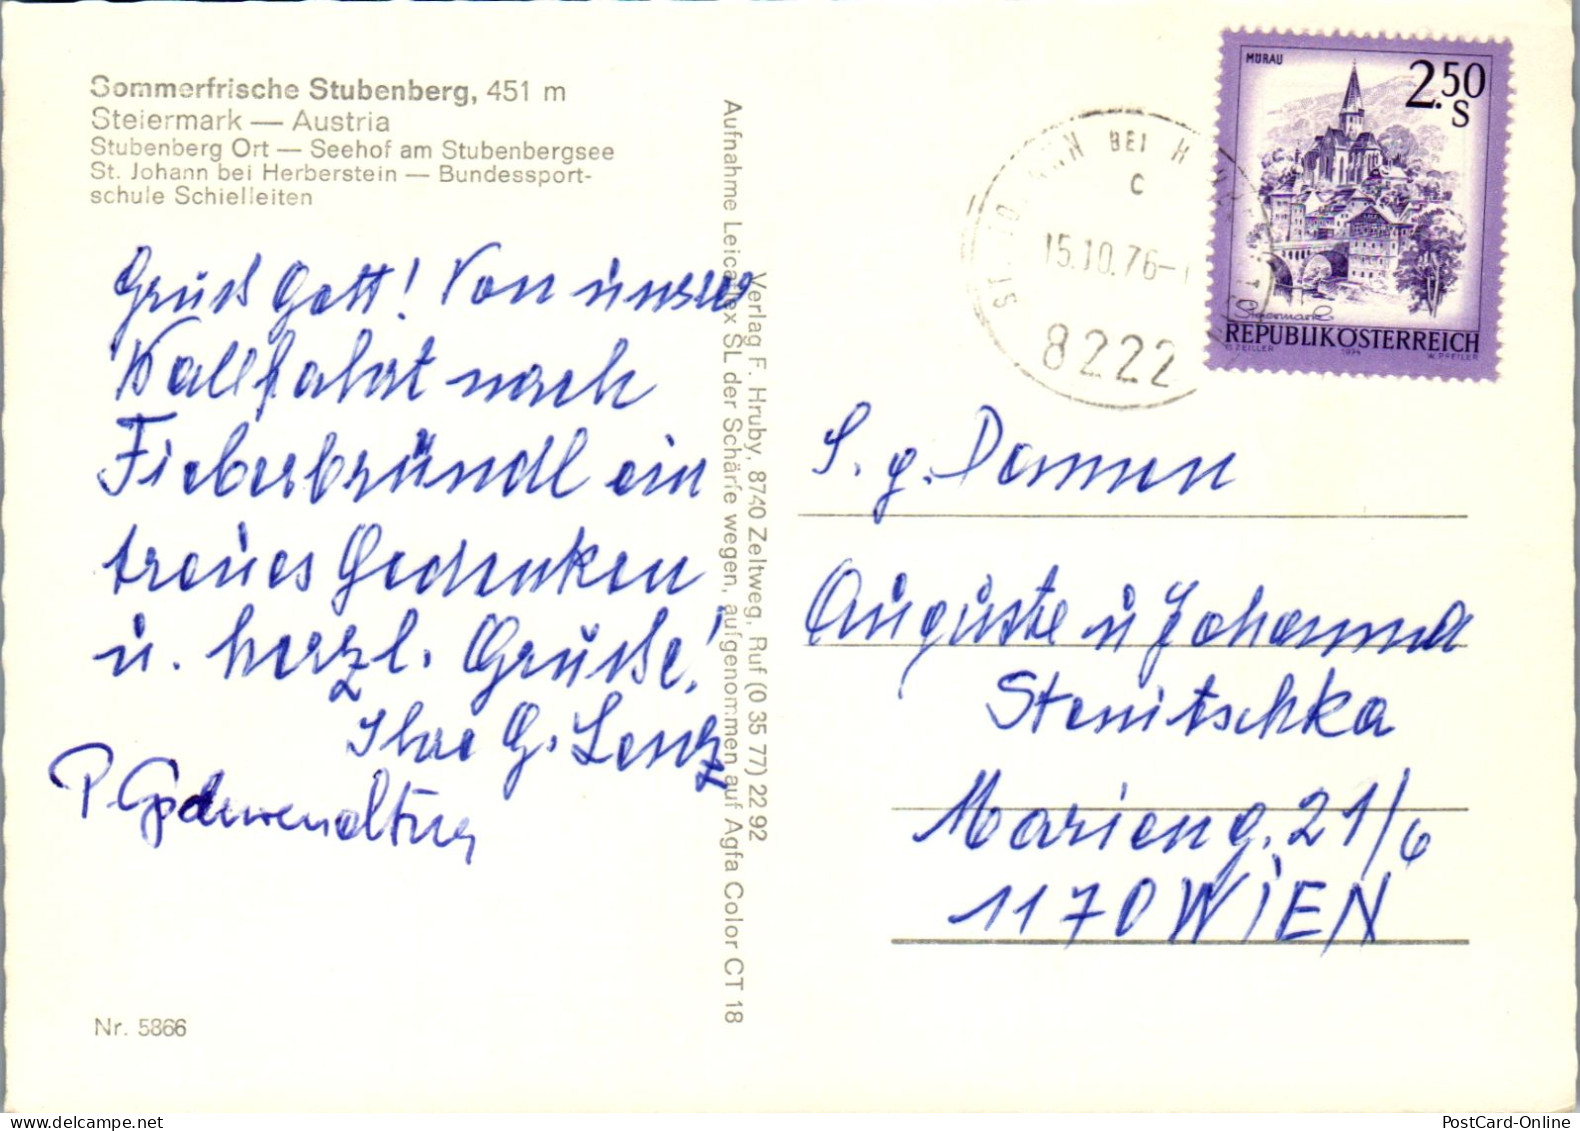 Sommerfrische Stubenberg, 451 m
Steiermark — Austria
Stubenberg Ort — Seehof am Stubenbergsee
St. Johann bei Herberstein — Bundessport-
schule Schielleiten
Grüß Gott! Von unsrer
Wallfahrt nach
Fieberbründl ein
treues Gedenken
u. herzl. Grüße!
Ihre G. Lenz
P.
Nr. 5866
Verlag F. Hruby, 8740 Zeltweg, Ruf (0 35 77) 22 92
Aufnahme Leicaflex SL der Schärfe wegen, aufgenommen auf Agfa Color CT 18
ST. JOHANN BEI HERBERSTEIN
c
15.10.76-
8222
MURAU
2.50
S
Steiermark
REPUBLIK ÖSTERREICH
O. ZEILLER 1974 W. PFEILER
S. g. Damen
Auguste u Johanna
Stenitschka
Marieng. 21/6
1170 WIEN
PostCard-Online